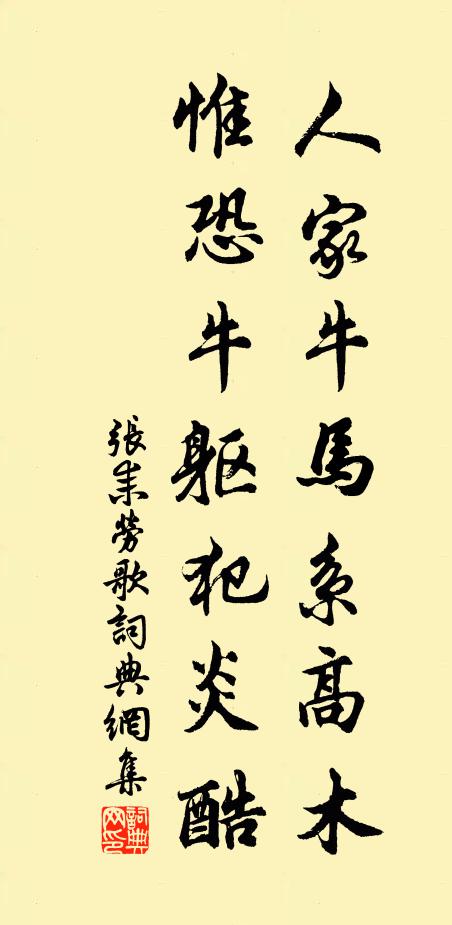 人家牛馬系高木
惟恐牛躯犯炎酷
張耒勞歌詞典網集
詞典網印